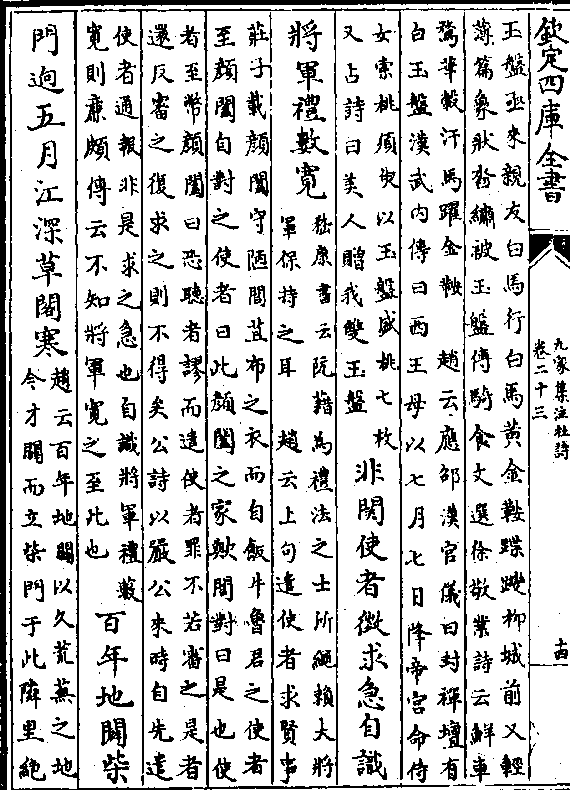 欽定四庫全書
九家集注杜詩
卷二十三
十四
玉盤亟來親友白馬行白馬黃金鞍蹀躞柳城前又輕
薄篇象牀沓繡被玉盤傳騎食文選徐敬業詩云鮮車
騖華轂汗馬躍金鞍 趙云應邵漢官儀曰封禪壇有
白玉盤漢武內傳曰西王母以七月七日降帝宮命侍
女索桃須臾以玉盤盛桃七枚
又占詩曰美人贈我雙玉盤
非關使者徵求急自識
將軍禮數寬
嵇康書云阮籍為禮法之士所繩賴大將
軍保持之耳 趙云上句遣使者求賢事
莊子載顏闔守陋閭苴布之衣而自飯牛魯君之使者
至顏闔自對之使者曰此顏闔之家歟闔對曰是也使
者至幣顏闔曰恐聽者謬而遺使者罪不若審之是者
還反審之復求之則不得矣公詩以嚴公來時自先遣
使者通報非是求之急也自識將軍禮數
寬則廉頗傳云不知將軍寬之至此也
百年地闢柴
門迥五月江深草閣寒
趙云百年地闢以久荒蕪之地
今才闢而立柴門于此隣里絕